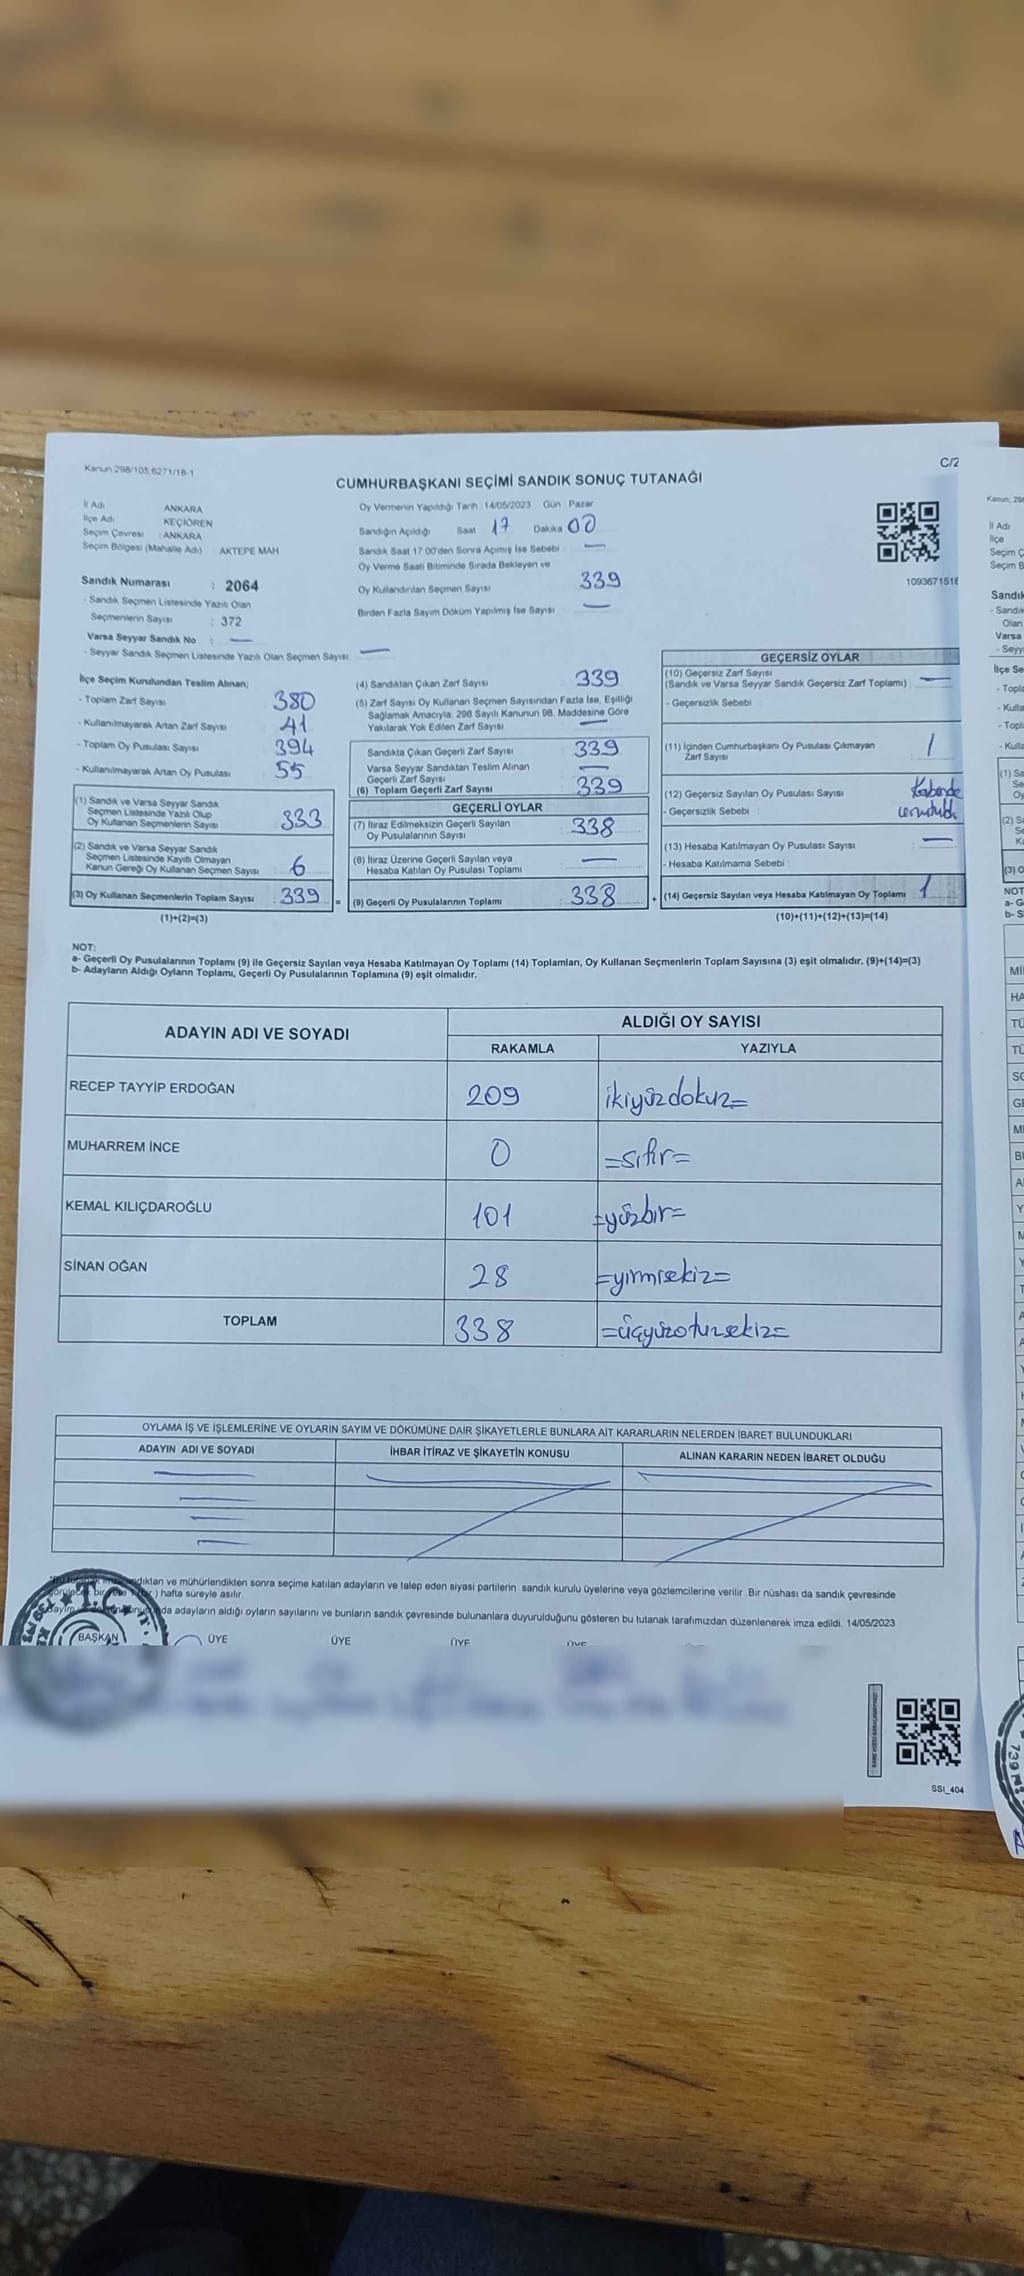 Kanun;298/105,6271/18-1
C/2
CUMHURBAŞKANI SEÇİMİ SANDIK SONUÇ TUTANAĞI
İl Adı ANKARA
İlçe Adı KEÇİÖREN
Seçim Çevresi : ANKARA
Seçim Bölgesi (Mahalle Adı) AKTEPE MAH
Sandık Numarası : 2064
- Sandık Seçmen Listesinde Yazılı Olan
Seçmenlerin Sayısı : 372
Varsa Seyyar Sandık No : —
- Seyyar Sandık Seçmen Listesinde Yazılı Olan Seçmen Sayısı —
Oy Vermenin Yapıldığı Tarih : 14/05/2023 Gün : Pazar
Sandığın Açıldığı Saat 17 Dakika 00
Sandık Saat 17:00'den Sonra Açılmış İse Sebebi : —
Oy Verme Saati Bitiminde Sırada Bekleyen ve
Oy Kullandırılan Seçmen Sayısı 339
Birden Fazla Sayım Döküm Yapılmış İse Sayısı —
1093671518
İlçe Seçim Kurulundan Teslim Alınan;
- Toplam Zarf Sayısı 380
- Kullanılmayarak Artan Zarf Sayısı 41
- Toplam Oy Pusulası Sayısı 394
- Kullanılmayarak Artan Oy Pusulası 55
(1) Sandık ve Varsa Seyyar Sandık
Seçmen Listesinde Yazılı Olup
Oy Kullanan Seçmenlerin Sayısı 333
(2) Sandık ve Varsa Seyyar Sandık
Seçmen Listesinde Kayıtlı Olmayan
Kanun Gereği Oy Kullanan Seçmen Sayısı 6
(3) Oy Kullanan Seçmenlerin Toplam Sayısı 339 =
(1)+(2)=(3)
(4) Sandıktan Çıkan Zarf Sayısı 339
(5) Zarf Sayısı Oy Kullanan Seçmen Sayısından Fazla İse, Eşitliği
Sağlamak Amacıyla, 298 Sayılı Kanunun 98. Maddesine Göre
Yakılarak Yok Edilen Zarf Sayısı —
Sandıkta Çıkan Geçerli Zarf Sayısı 339
Varsa Seyyar Sandıktan Teslim Alınan
Geçerli Zarf Sayısı —
(6) Toplam Geçerli Zarf Sayısı 339
GEÇERLİ OYLAR
(7) İtiraz Edilmeksizin Geçerli Sayılan
Oy Pusulalarının Sayısı 338
(8) İtiraz Üzerine Geçerli Sayılan veya
Hesaba Katılan Oy Pusulası Toplamı —
(9) Geçerli Oy Pusulalarının Toplamı 338 +
GEÇERSİZ OYLAR
(10) Geçersiz Zarf Sayısı
(Sandık ve Varsa Seyyar Sandık Geçersiz Zarf Toplamı) : —
- Geçersizlik Sebebi
(11) İçinden Cumhurbaşkanı Oy Pusulası Çıkmayan
Zarf Sayısı 1
(12) Geçersiz Sayılan Oy Pusulası Sayısı Kabinde
- Geçersizlik Sebebi : unutuldu
(13) Hesaba Katılmayan Oy Pusulası Sayısı —
- Hesaba Katılmama Sebebi :
(14) Geçersiz Sayılan veya Hesaba Katılmayan Oy Toplamı : 1
(10)+(11)+(12)+(13)=(14)
NOT:
a- Geçerli Oy Pusulalarının Toplamı (9) ile Geçersiz Sayılan veya Hesaba Katılmayan Oy Toplamı (14) Toplamları, Oy Kullanan Seçmenlerin Toplam Sayısına (3) eşit olmalıdır. (9)+(14)=(3)
b- Adayların Aldığı Oyların Toplamı, Geçerli Oy Pusulalarının Toplamına (9) eşit olmalıdır.
ADAYIN ADI VE SOYADI ALDIĞI OY SAYISI
RAKAMLA YAZIYLA
RECEP TAYYİP ERDOĞAN 209 ikiyüzdokuz=
MUHARREM İNCE 0 =sıfır=
KEMAL KILIÇDAROĞLU 101 =yüzbir=
SİNAN OĞAN 28 =yirmisekiz=
TOPLAM 338 =üçyüzotuzsekiz=
OYLAMA İŞ VE İŞLEMLERİNE VE OYLARIN SAYIM VE DÖKÜMÜNE DAİR ŞİKAYETLERLE BUNLARA AİT KARARLARIN NELERDEN İBARET BULUNDUKLARI
ADAYIN ADI VE SOYADI İHBAR İTİRAZ VE ŞİKAYETİN KONUSU ALINAN KARARIN NEDEN İBARET OLDUĞU
ve mühürlendikten sonra seçime katılan adayların ve talep eden siyasi partilerin sandık kurulu üyelerine veya gözlemcilerine verilir. Bir nüshası da sandık çevresinde
hafta süreyle asılır.
adayların aldığı oyların sayılarını ve bunların sandık çevresinde bulunanlara duyurulduğunu gösteren bu tutanak tarafımızdan düzenlenerek imza edildi. 14/05/2023
BAŞKAN ÜYE ÜYE ÜYE ÜYE
SSİ_404